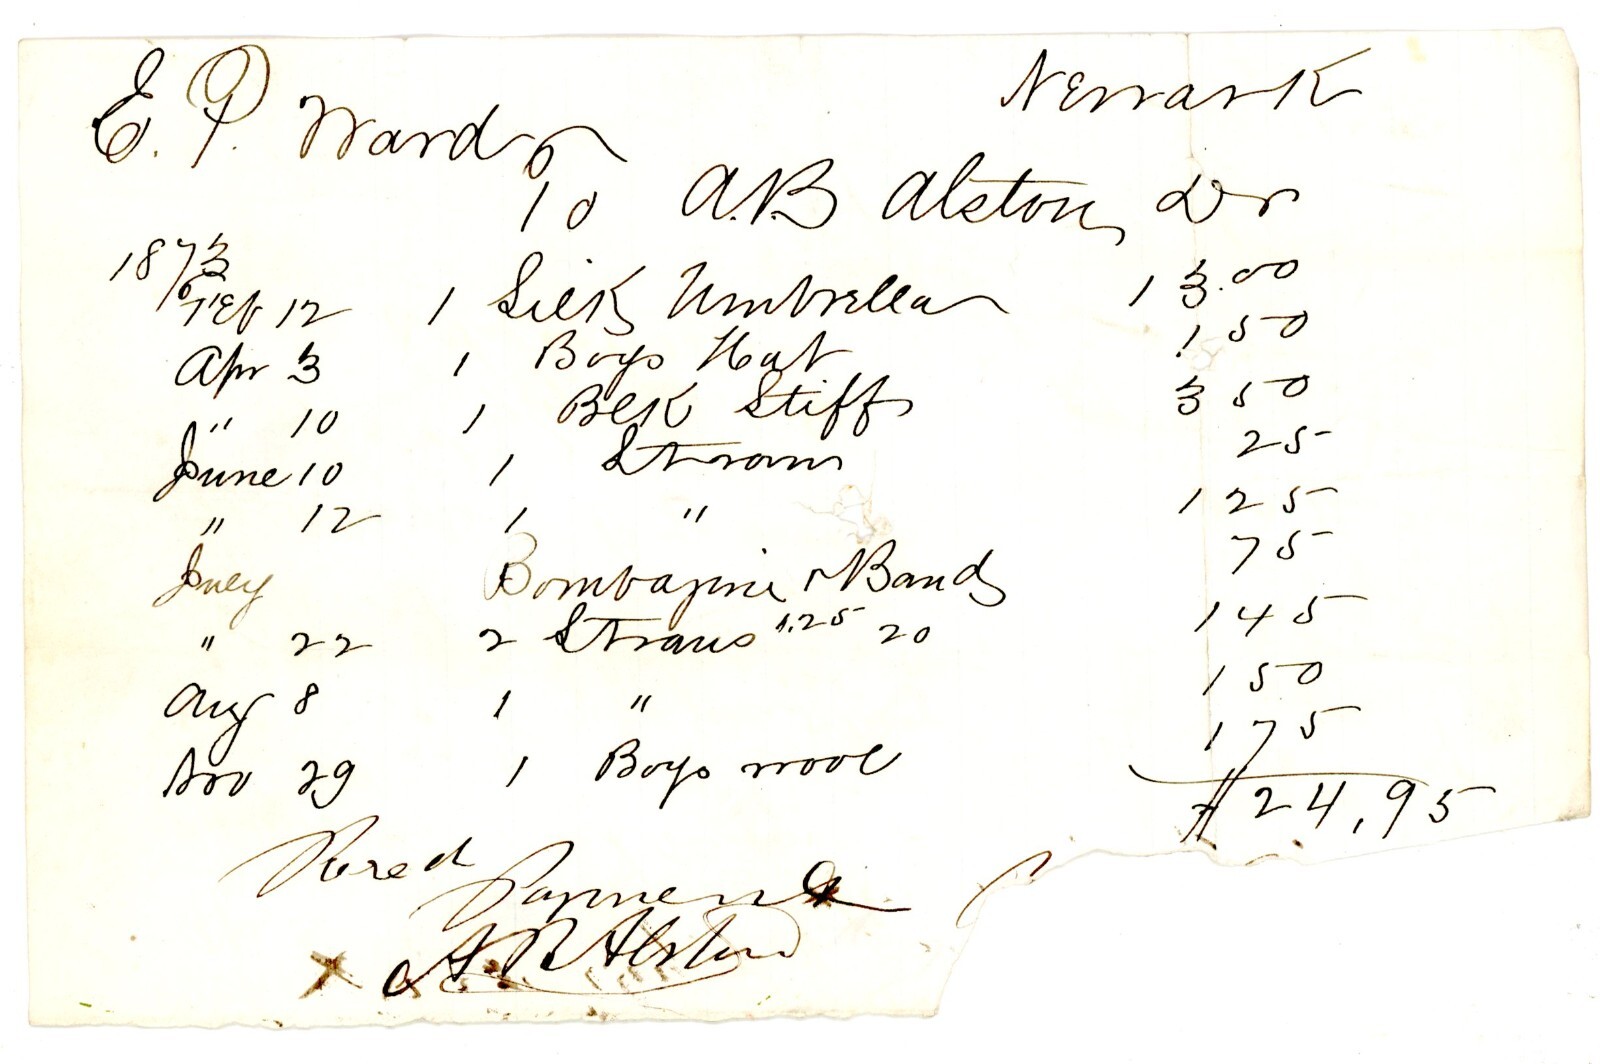 Newark
E. P. Ward
To A.B Alston Dr
1873
Feb 12 1 Silk Umbrella 13.00
Apr 3 1 Boys Hat 1 50
" 10 1 Blk Stiff 3 50
June 10 1 Straw 25
" 12 1 " 1 25
July Bombazine & Band 75
" 22 2 Straws 1.25 20 1 45
Aug 8 1 " 1 50
Nov 29 1 Boys wool 1 75
$24,95
Recd
Payment
A B Alston